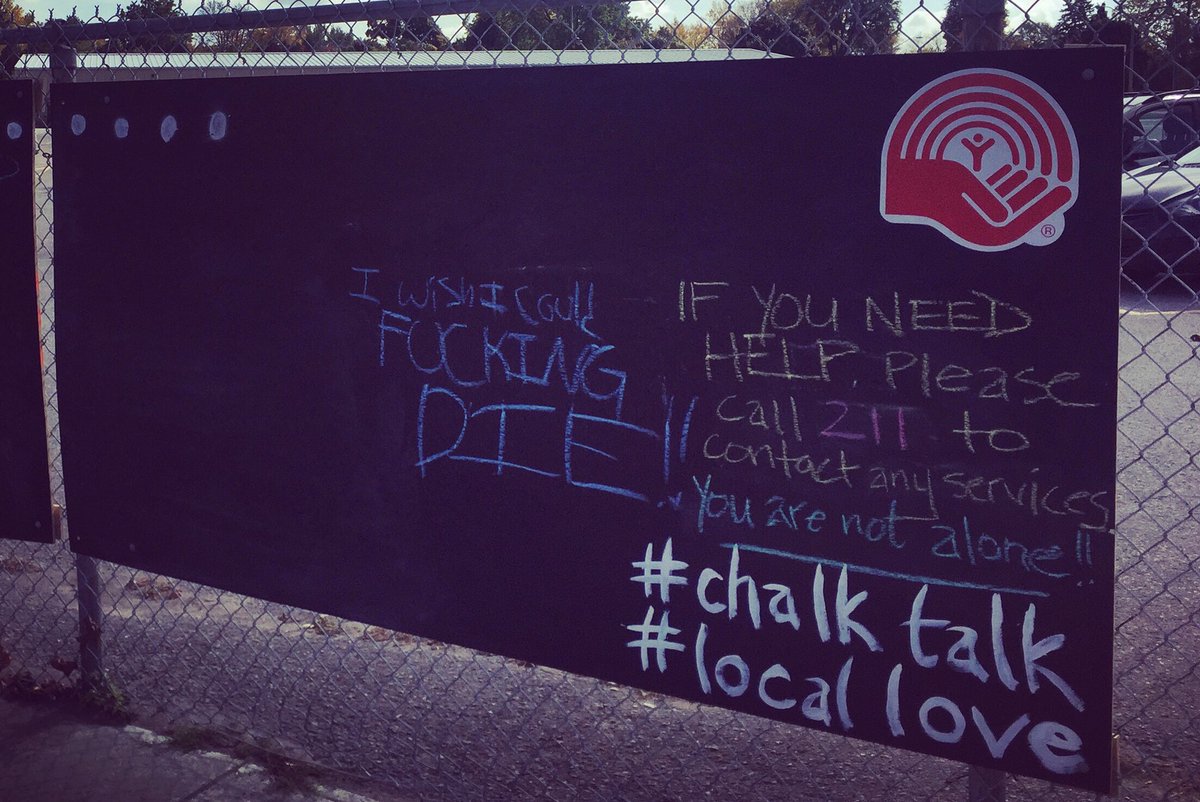 I wish I could
FUCKING
DIE!!!
IF YOU NEED
HELP, please
call 211 to
contact any services
you are not alone!!
#chalk talk
#local love
®